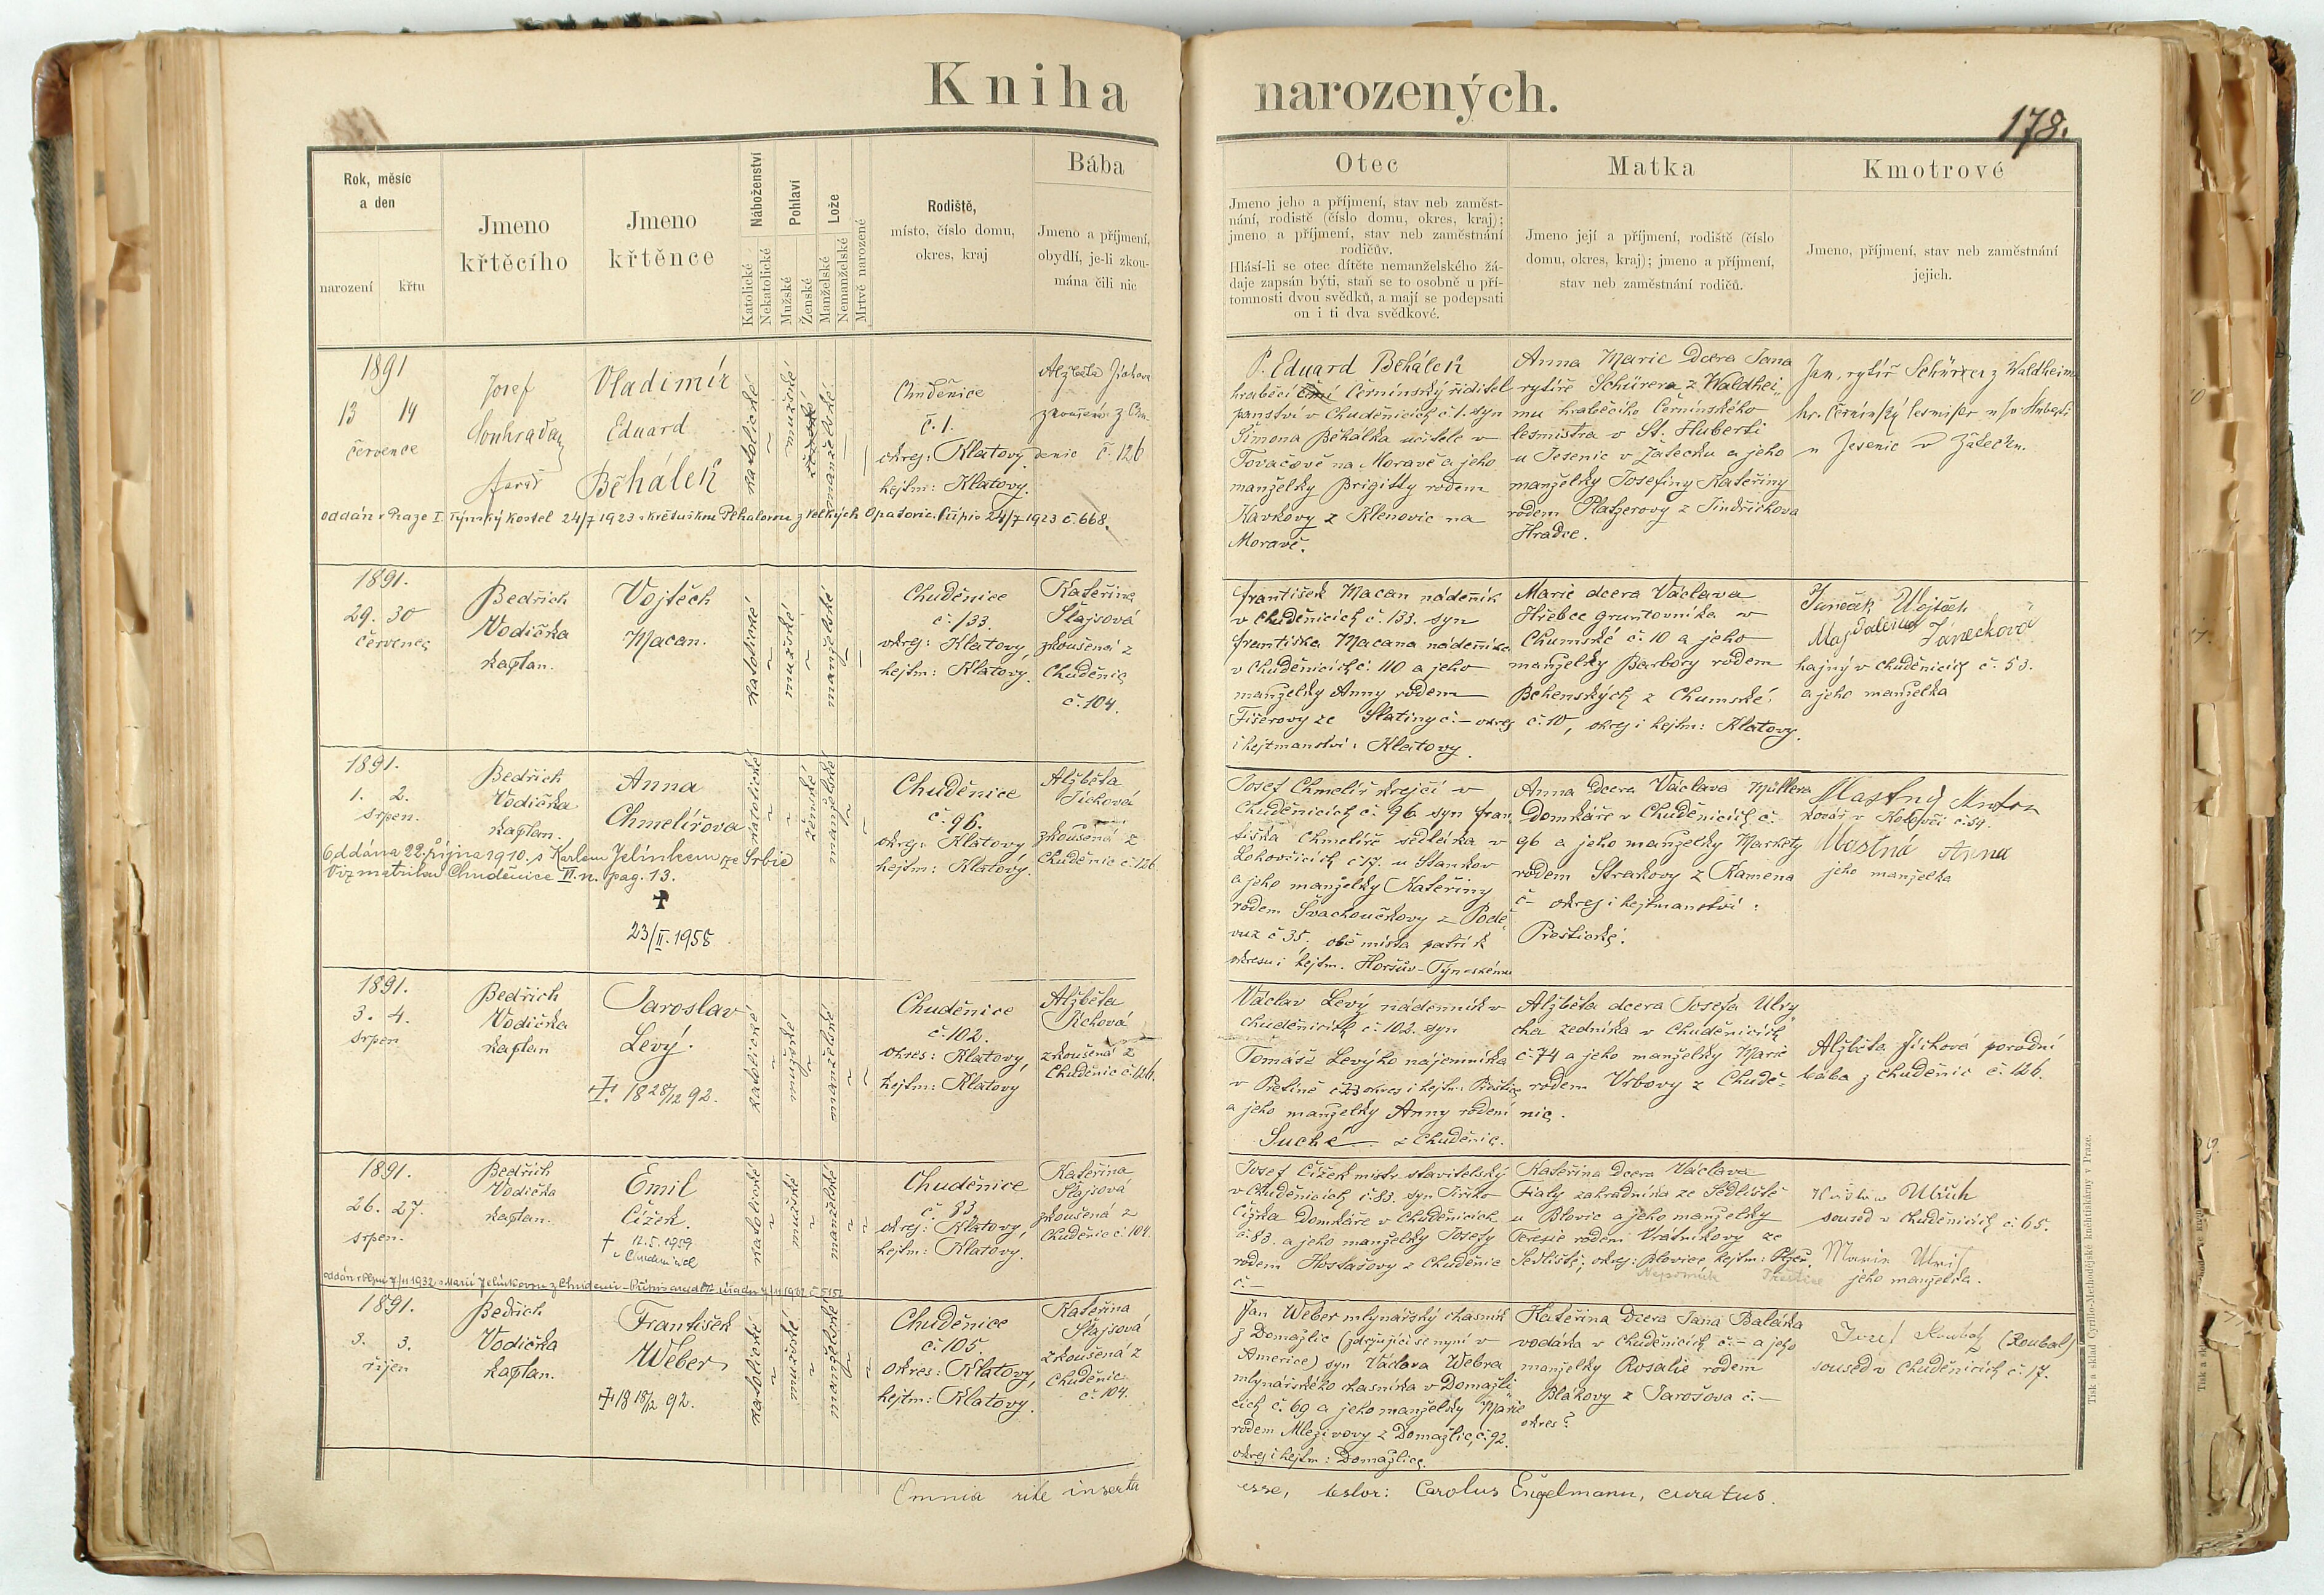 Kniha narozených.
178.
Rok, měsíc a den
narození
křtu
Jmeno křtěcího
Jmeno křtěnce
Náboženství
Katolické
Nekatolické
Pohlaví
Mužské
Ženské
Lože
Manželské
Nemanželské
Mrtvě narozené
Rodiště,
místo, číslo domu,
okres, kraj
Bába
Jmeno a příjmení,
obydlí, je-li zkou-
mána čili nic
Otec
Jmeno jeho a příjmení, stav neb zaměst-
nání, rodiště (číslo domu, okres, kraj);
jmeno a příjmení, stav neb zaměstnání
rodičův.
Hlásí-li se otec dítěte nemanželského žá-
daje zapsán býti, staň se to osobně u pří-
tomnosti dvou svědků, a mají se podepsati
on i ti dva svědkové.
Matka
Jmeno její a příjmení, rodiště (číslo
domu, okres, kraj); jmeno a příjmení,
stav neb zaměstnání rodičů.
Kmotrové
Jmeno, příjmení, stav neb zaměstnání
jejich.
1891
13 14
července
Josef
Souhrada
farář
Vladimír
Eduard
Běhálek
katolické
mužské
manželské
Chuděnice
č. 1.
okrej: Klatovy
hejtm: Klatovy.
Alžběta Jíchova
zkoušená z Chu-
denic č. 126
oddán v Praze I. Týnský kostel 24/7 1923 s Květuškou z Velkých Opatovic. Přípis 24/7 1923 č. 668.
P. Eduard Běhálek
hraběcí Černínský řiditel
panství v Chuděnicích č. 1. syn
Šimona Běhálka učitele v
Tovačově na Moravě a jeho
manželky Brigitty rodem
Kavkovy z Klenovic na
Moravě.
Anna Marie dcera Jana
rytíře Schürera z Waldhei-
mu hraběcího Černínského
lesmistra v St. Huberti
u Jesenic v Žatecku a jeho
manželky Josefiny Kateřiny
rodem Platzerovy z Jindřichova
Hradce.
Jan, rytíř Schürer z Waldheim
hr. Černínský lesmistr u sv Huberti
u Jesenic v Žatecku.
1891.
29. 30
červenec
Bedřich
Vodička
kaplan.
Vojtěch
Macan.
katolické
mužské
manželské
Chuděnice
č. 133.
okrej: Klatovy,
hejtm: Klatovy.
Kateřina
Šlajsová
zkoušená z
Chuděnic
č. 104.
František Macan nádeník
v Chuděnicích č. 133. syn
Františka Macana nádeníka
v Chuděnicích č. 110 a jeho
manželky Anny rodem
Fišerovy ze Slatiny č. – okrej
i hejtmanství: Klatovy.
Marie dcera Václava
Hřebce gruntovníka v
Chumské č. 10 a jeho
manželky Barbory rodem
z Chumské
č. 10, okrej i hejtm: Klatovy.
Janeček Wojtěch
Magdalena Janečková
hajný v Chuděnicích č. 53.
a jeho manželka
1891.
1. 2.
srpen.
Bedřich
Vodička
kaplan.
Anna
Chmelířova
katolické
ženské
manželské
Chuděnice
č. 96.
okrej: Klatovy
hejtm: Klatovy.
Alžběta
Jíchová
zkoušená z
Chuděnic č. 126
Oddána 22. října 1910. s Karlem Jelínkem ze Srbic
Viz matriku Chuděnice II. n. pag. 13.
✝
23/II. 1958
Josef Chmelíř krejčí v
Chuděnicích č. 96 syn Fran-
tiška Chmelíře sedláka v
č. 17. u Stankov
a jeho manželky Kateřiny
rodem Švachoučkovy z Podě-
vuz č 35, obě místa patří k
okresu i hejtm. Horšův-Týnskému
Anna dcera Václava Müllera
Domkáře v Chuděnicích č.
96 a jeho manželky Markéty
rodem Strakovy z Kamena
č – okrej i hejtmanství:
Přeštické.
Mastný Anton
kovář v č. 34.
Mastná Anna
jeho manželka
1891.
3. 4.
srpen
Bedřich
Vodička
kaplan
Jaroslav
Levý.
✝ 18 28/12 92.
katolické
mužské
manželské
Chuděnice
č. 102.
okres: Klatovy,
hejtm: Klatovy
Alžběta
Jíchová
zkoušená z
Chuděnic č. 126.
Václav Levý nádenník v
Chuděnicích č. 102. syn
Tomáše Levýho nájemníka
v č. 23 okres i hejtm. Přeštice
a jeho manželky Anny rodem
Suché z Chuděnic.
Alžběta dcera Josefa Ulry-
cha zedníka v Chuděnicích
č. 74 a jeho manželky Marie
rodem Vrbovy z Chudě-
nic.
Alžběta Jíchová porodní
bába z Chuděnic č. 126.
1891.
26. 27.
srpen.
Bedřich
Vodička
kaplan.
Emil
Čížek.
✝ 12. 5. 1959
v Chudenicích
katolické
mužské
manželské
Chuděnice
č. 83
okrej: Klatovy,
hejtm: Klatovy.
Kateřina
Šlajsová
zkoušená z
Chuděnic č. 104.
Josef Čížek mistr stavitelský
v Chuděnicích č. 83. syn Jiřího
Čížka Domkáře v Chuděnicích
č. 83. a jeho manželky Josefy
rodem Hostašovy z Chuděnic
č. –
Kateřina dcera Václava
Fialy zahradníka ze Sedliště
u Blovic a jeho manželky
Terezie rodem Vrátníkovy ze
Sedliště, okrej: Blovice hejtm: Plzeň.
Nepomuk Přeštice
Ulrich
soused v Chuděnicích č. 65.
Marie
jeho manželka.
1891.
3. 3.
říjen
Bedřich
Vodička
kaplan.
František
Weber
✝ 18 18/12 92.
katolické
mužské
manželské
Chuděnice
č. 105.
okres: Klatovy,
hejtm: Klatovy.
Kateřina
Šlajsová
zkoušená z
Chuděnic
č. 104.
Jan Weber mlynářský chasník
z Domažlic (zdržující se nyní v
Americe) syn Václava Webra
mlynářského chasníka v Domažli-
cích č. 69 a jeho manželky Marie
rodem Mlezivovy z Domažlic, č. 92.
okrej i hejtm: Domažlice.
Kateřina dcera Jana Baláka
vodáka v Chuděnicích č. – a jeho
manželky Rosalie rodem
Blákovy z Jarošova č. –
okres?
Josef Roubal (Roubal)
soused v Chuděnicích č. 17.
Omnia rite inserta esse, testor: Carolus Engelmann, curatus.
Tisk a sklad Cyrillo-Methodějské knihtiskárny v Praze.